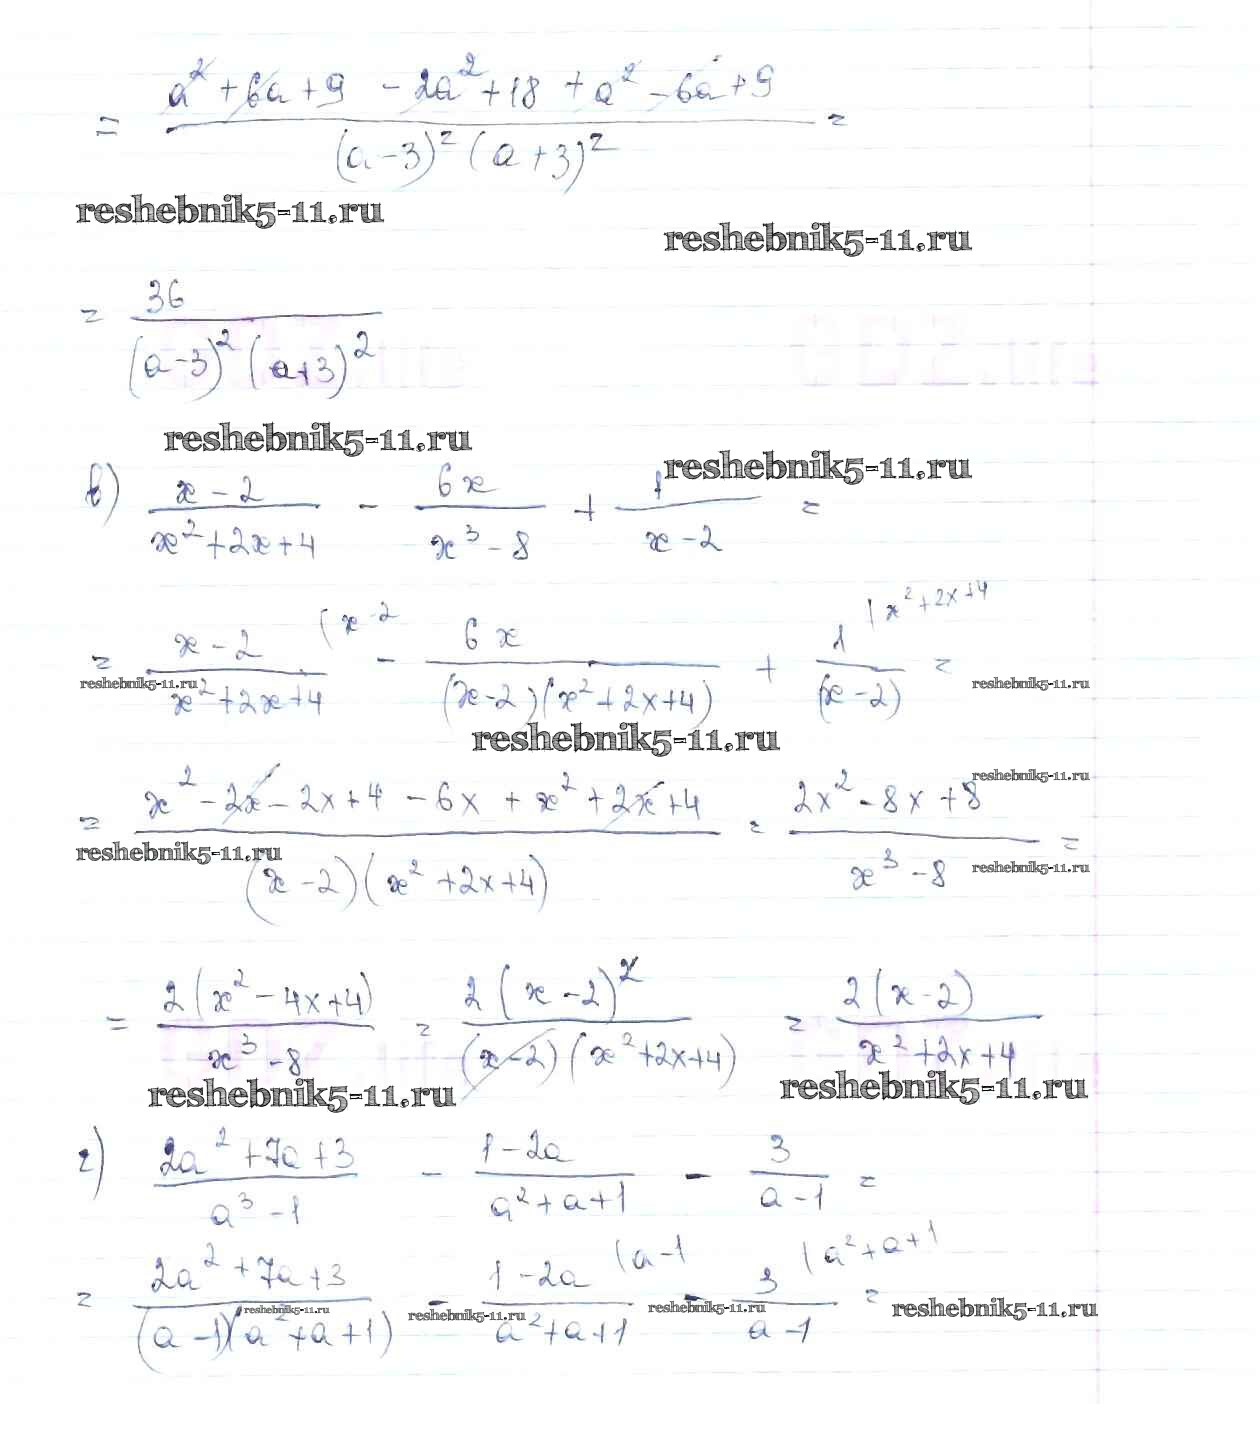 = (a² + 6a + 9 - 2a² + 18 + a² - 6a + 9) / ((a - 3)² (a + 3)²) =
reshebnik5-11.ru
reshebnik5-11.ru
= 36 / ((a - 3)² (a + 3)²)
reshebnik5-11.ru
reshebnik5-11.ru
в) (x - 2) / (x² + 2x + 4) - 6x / (x³ - 8) + 1 / (x - 2) =
= (x - 2) / (x² + 2x + 4) (x - 2 - 6x / ((x - 2)(x² + 2x + 4)) + 1 / (x - 2) (x² + 2x + 4 =
reshebnik5-11.ru
reshebnik5-11.ru
reshebnik5-11.ru
reshebnik5-11.ru
= (x² - 2x - 2x + 4 - 6x + x² + 2x + 4) / ((x - 2)(x² + 2x + 4)) = (2x² - 8x + 8) / (x³ - 8) =
reshebnik5-11.ru
reshebnik5-11.ru
= 2(x² - 4x + 4) / (x³ - 8) = 2(x - 2)² / ((x - 2)(x² + 2x + 4)) = 2(x - 2) / (x² + 2x + 4)
reshebnik5-11.ru
reshebnik5-11.ru
г) (2a² + 7a + 3) / (a³ - 1) - (1 - 2a) / (a² + a + 1) - 3 / (a - 1) =
= (2a² + 7a + 3) / ((a - 1)(a² + a + 1)) - (1 - 2a) / (a² + a + 1) (a - 1 - 3 / (a - 1) (a² + a + 1 =
reshebnik5-11.ru
reshebnik5-11.ru
reshebnik5-11.ru
reshebnik5-11.ru